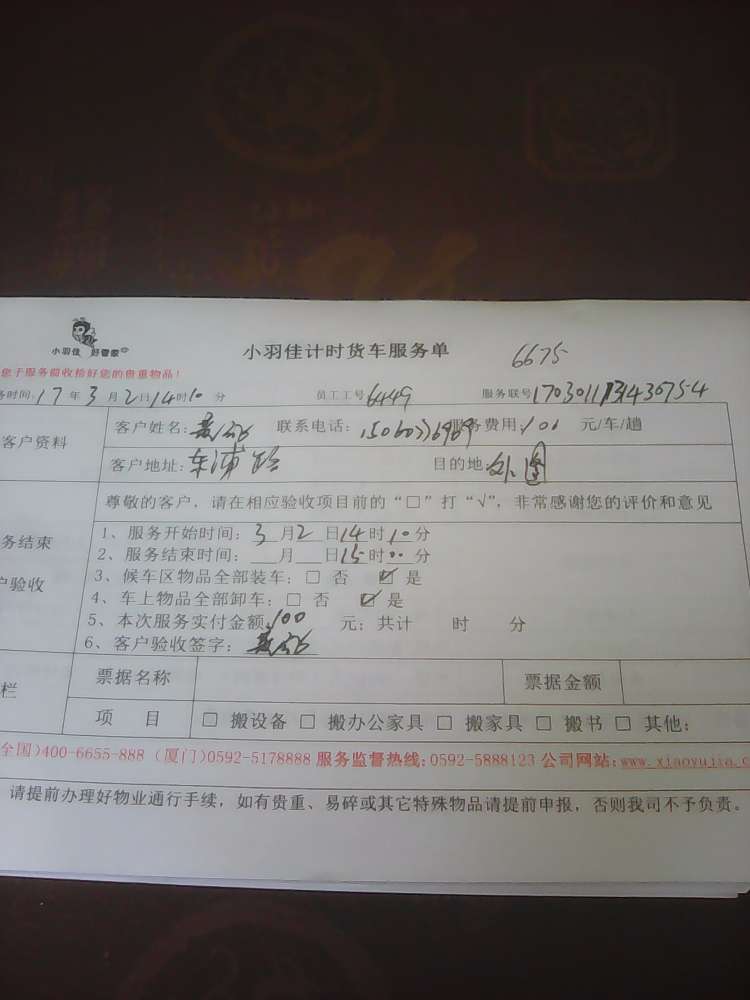 小羽佳 好管家
小羽佳计时货车服务单 6675
您于服务前收拾好您的贵重物品!
务时间:17年3月2日14时10分 员工工号6449 服务联号
客户资料
客户姓名: 联系电话: 服务费用:100 元/车/趟
客户地址:东浦路 目的地:外图
尊敬的客户，请在相应验收项目前的“□”打“√”，非常感谢您的评价和意见
务结束
户验收
1、服务开始时间:3月2日14时10分
2、服务结束时间: 月 日15时00分
3、候车区物品全部装车:□ 否 ☑ 是
4、车上物品全部卸车:□ 否 ☑ 是
5、本次服务实付金额:100 元;共计 时 分
6、客户验收签字:
栏
票据名称 票据金额
项 目 □ 搬设备 □ 搬办公家具 □ 搬家具 □ 搬书 □ 其他:
全国)400-6655-888 (厦门)0592-5178888 服务监督热线:0592-5888123 公司网站:www.xiaoyujia.c
请提前办理好物业通行手续，如有贵重、易碎或其它特殊物品请提前申报，否则我司不予负责。